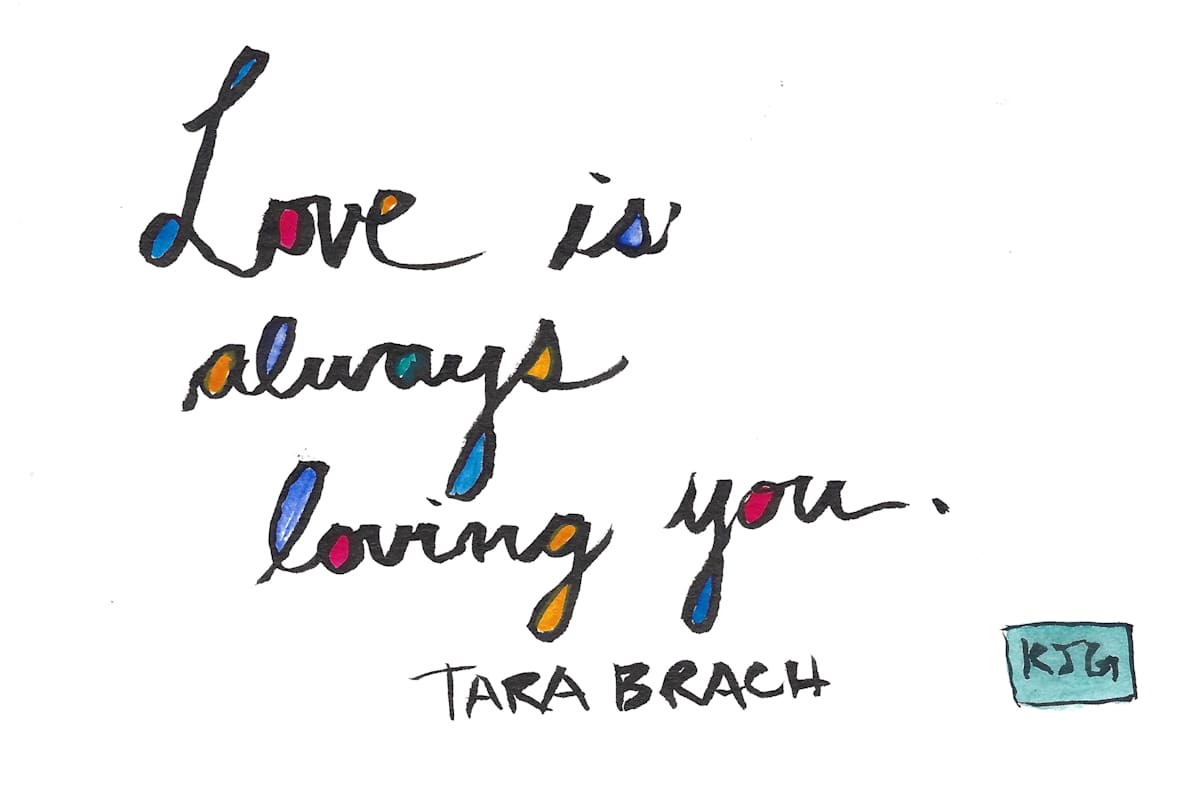 Love is
always
loving you.
TARA BRACH
KJG